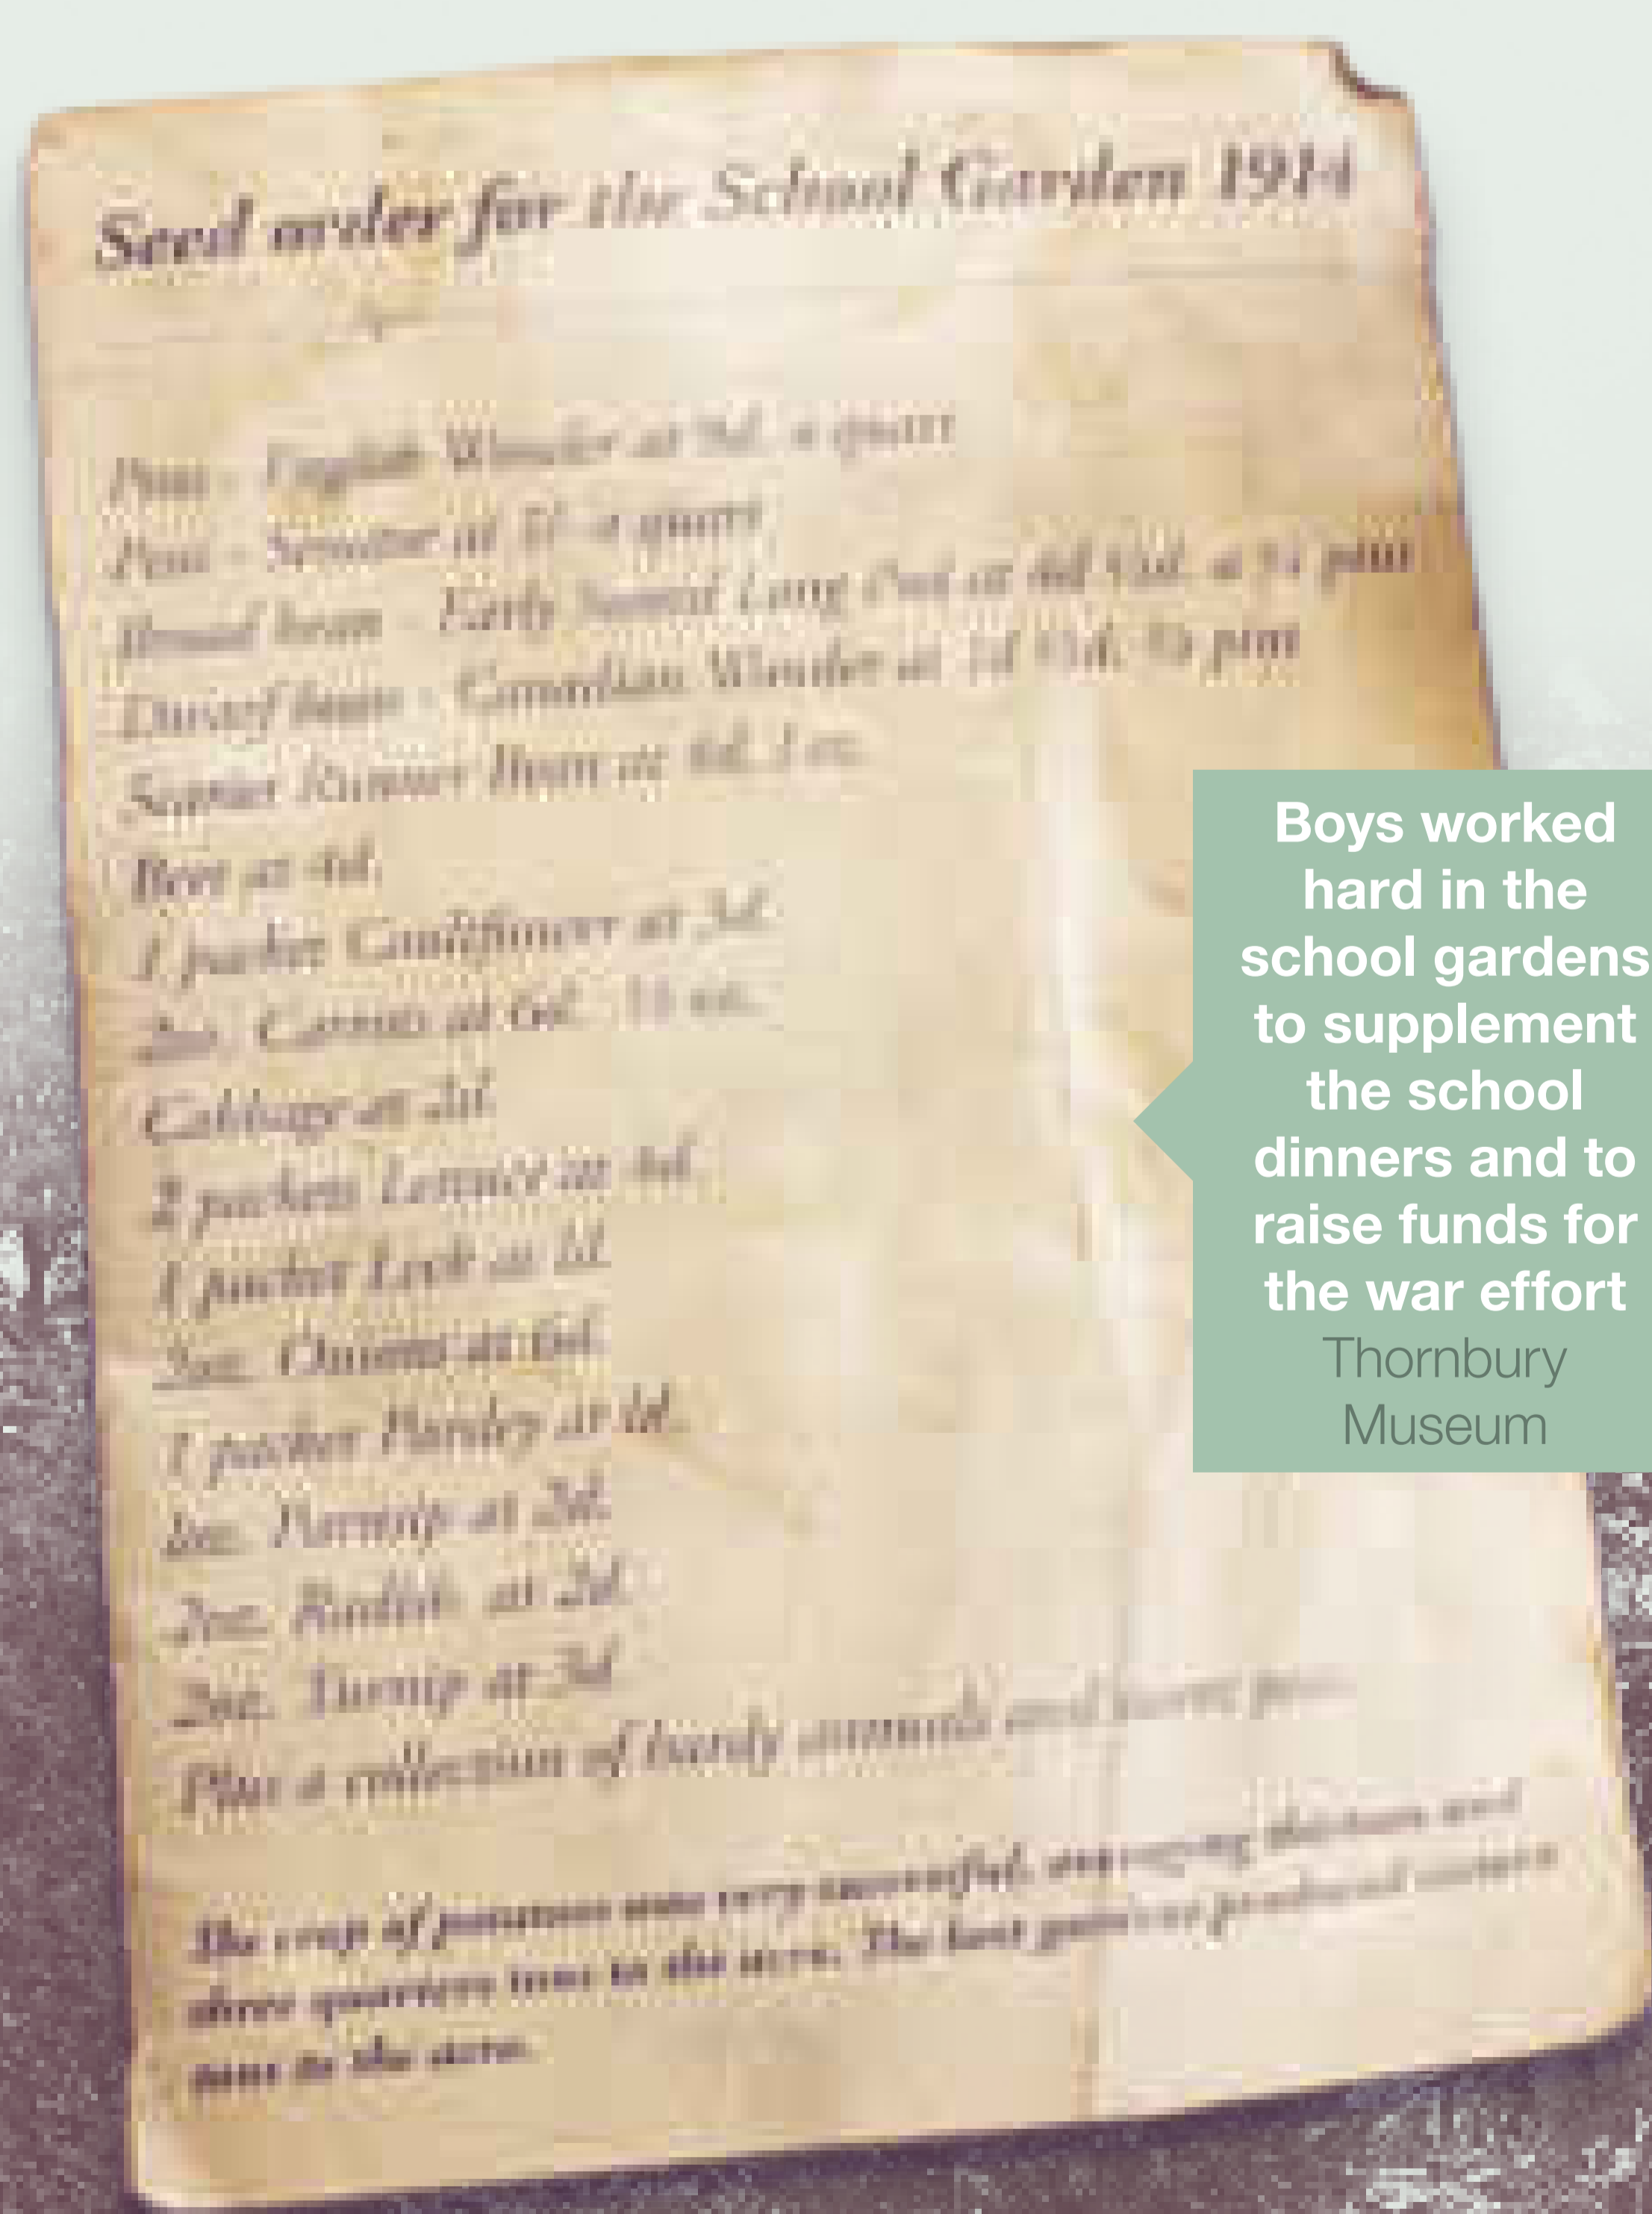 Seed order for the School Garden 1914
Peas - English Wonder at 9d. a quart
Peas - Senator at a quart
Broad bean - Early Long Pod at a pint
Dwarf bean - Canadian Wonder at pint
Scarlet Runner Bean at 6d.
Beet at 4d.
1 packet Cauliflower at 3d.
Carrots at 6d.
Cabbage at 2d.
2 packets Lettuce at 4d.
1 packet Leek at 1d.
Onions at 6d.
1 packet Parsley at 1d.
Parsnip at
2oz. Radish at 2d.
2oz. Turnip at 3d.
Plus a collection of hardy annuals and sweet peas.
The crop of potatoes was very successful, averaging thirteen and
three quarters tons to the acre. The best produced
tons to the acre.
Boys worked
hard in the
school gardens
to supplement
the school
dinners and to
raise funds for
the war effort
Thornbury
Museum